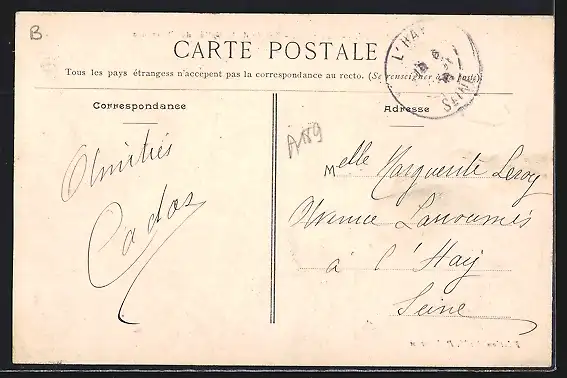 B
CARTE POSTALE
Tous les pays étrangess n'accepent pas la correspondance au recto. (Se renseigner à la poste).
Correspondance
Adresse
Amitiés
Cados
A189
Melle Marguerite Leroy
Avenue Larroumès
à l'Hay
Seine
L'HAY